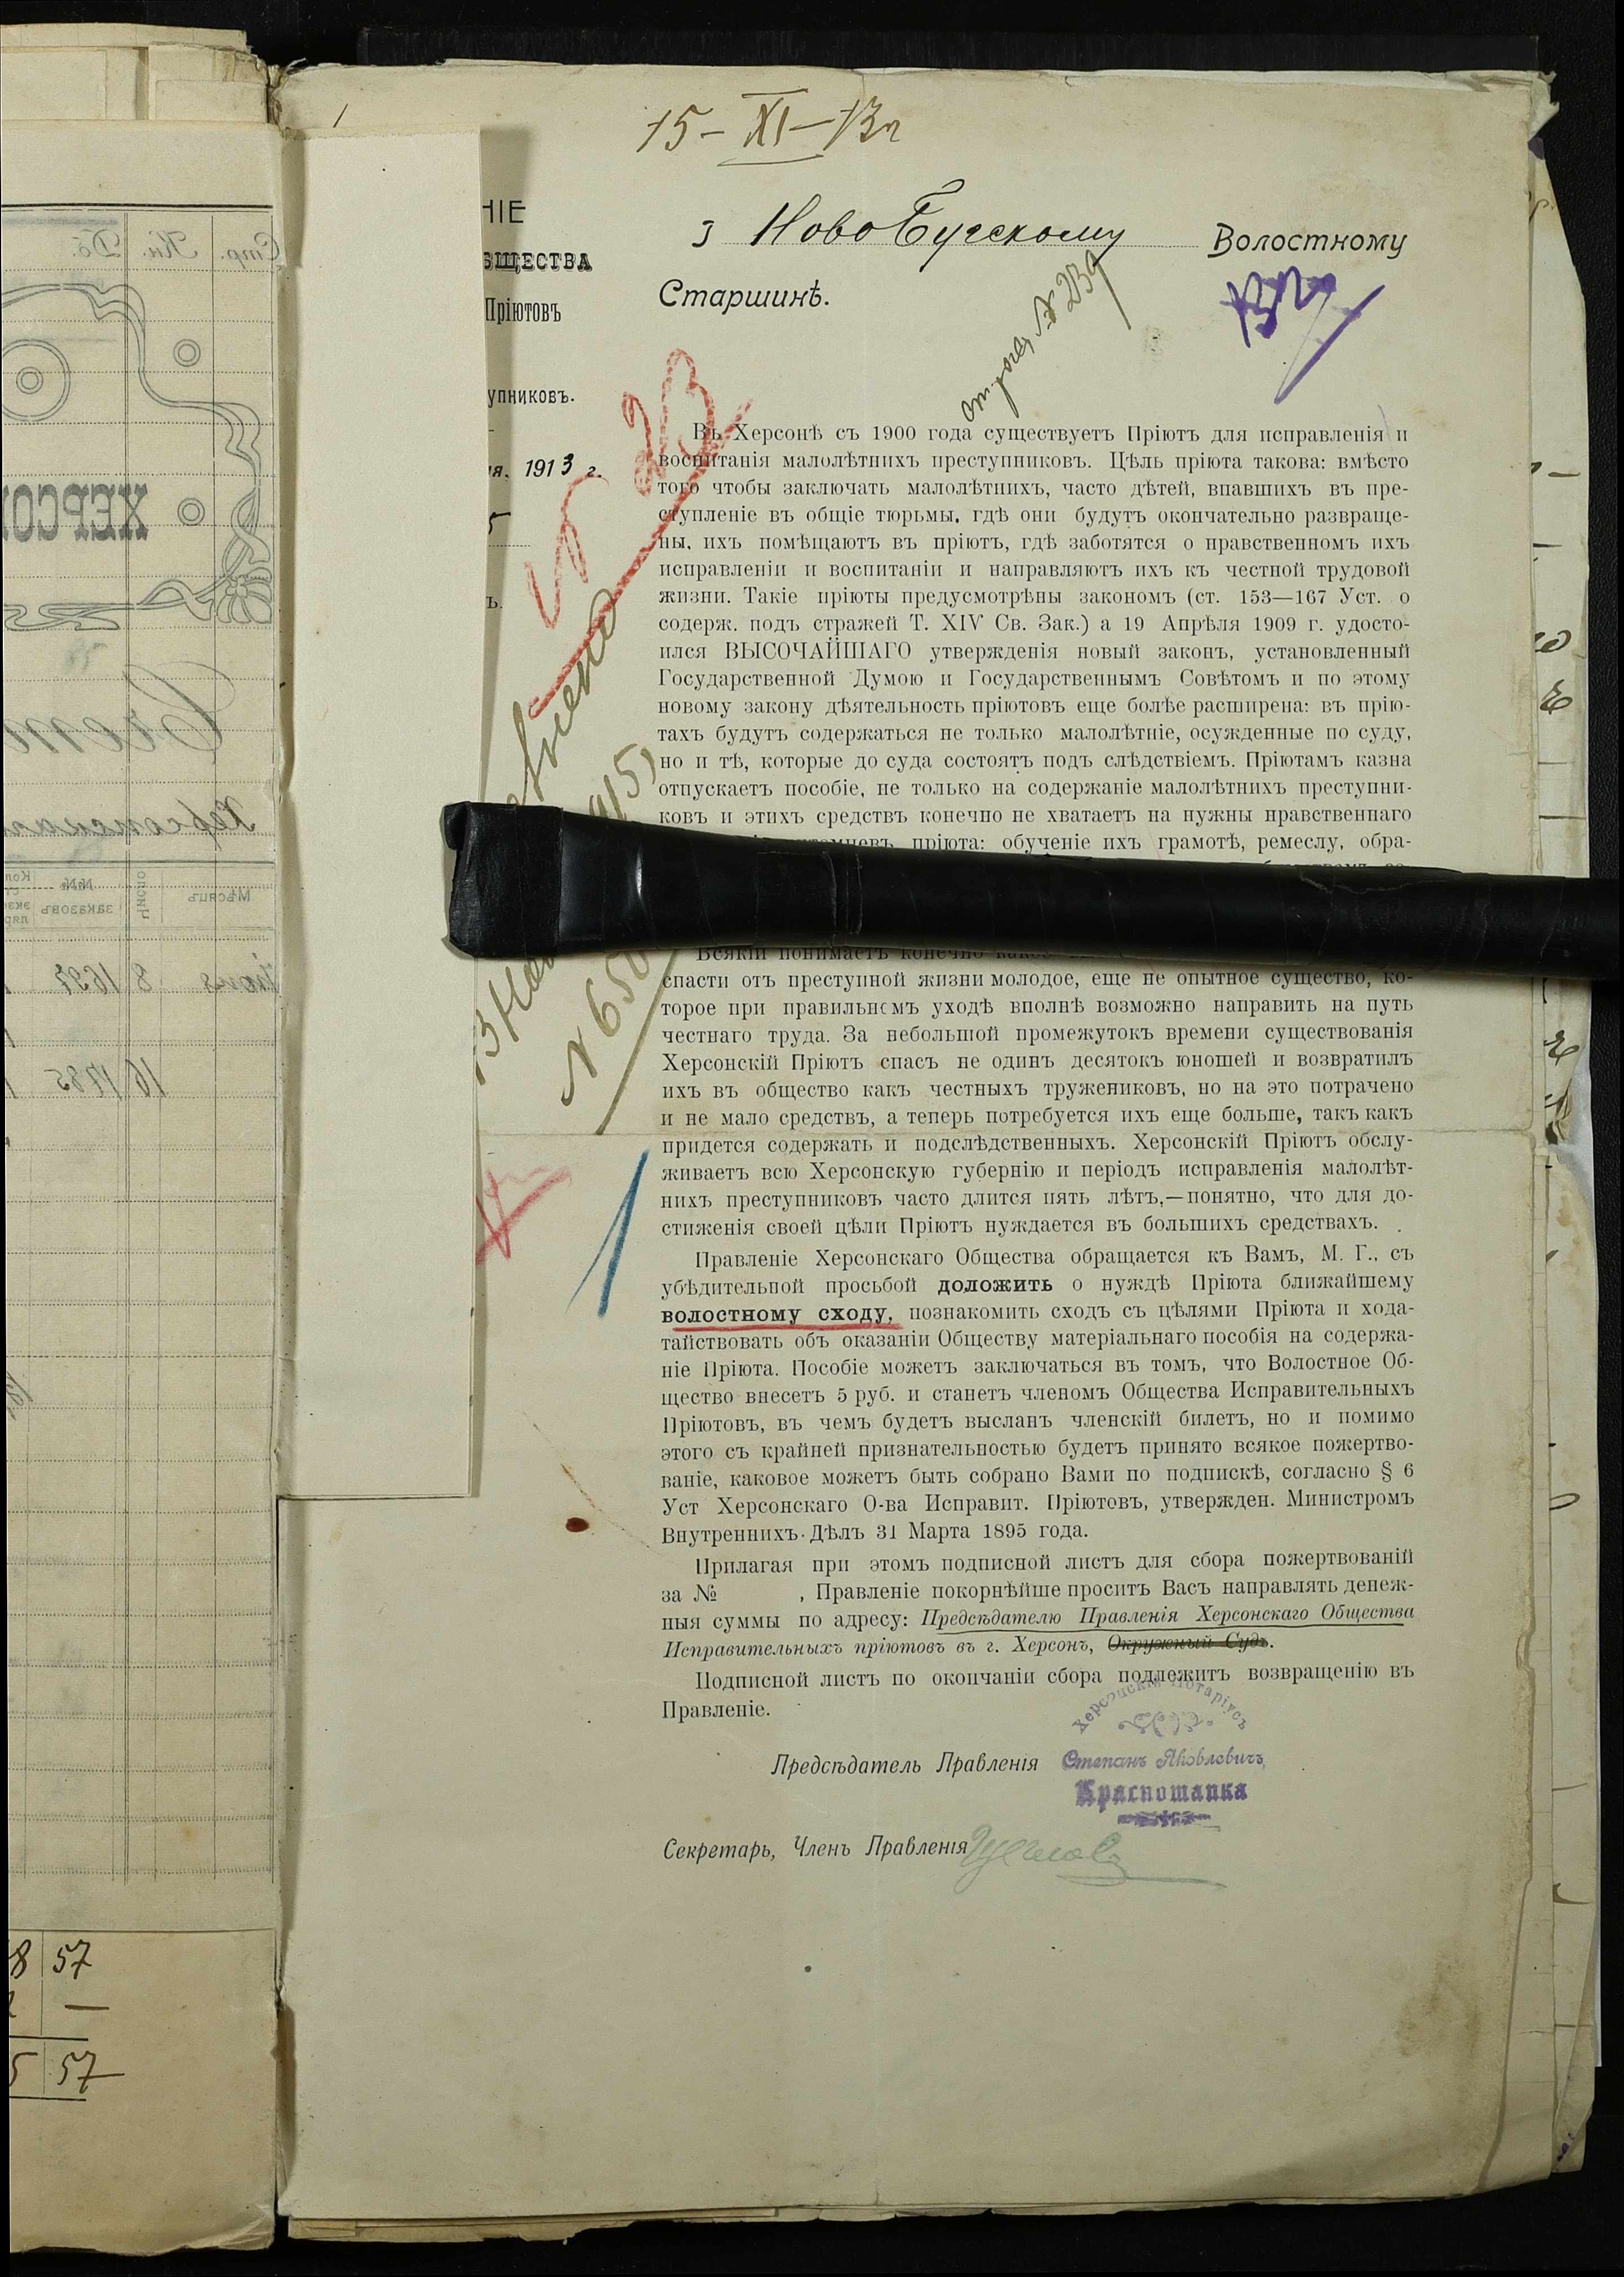 15-XI-13г
НІЕ
БЩЕСТВА
Пріютовъ
упниковъ.
ія. 1913 г.
Ново Бугскому Волостному
Старшинѣ.
№ 239
Въ Херсонѣ съ 1900 года существуетъ Пріютъ для исправленія и
воспитанія малолѣтнихъ преступниковъ. Цѣль пріюта такова: вмѣсто
того чтобы заключать малолѣтнихъ, часто дѣтей, впавшихъ въ пре-
ступленіе въ общіе тюрьмы, гдѣ они будутъ окончательно развраще-
ны, ихъ помѣщаютъ въ пріютъ, гдѣ заботятся о нравственномъ ихъ
исправленіи и воспитаніи и направляютъ ихъ къ честной трудовой
жизни. Такіе пріюты предусмотрѣны закономъ (ст. 153—167 Уст. о
содерж. подъ стражей Т. XIV Св. Зак.) а 19 Апрѣля 1909 г. удосто-
ился ВЫСОЧАЙШАГО утвержденія новый законъ, установленный
Государственной Думою и Государственнымъ Совѣтомъ и по этому
новому закону дѣятельность пріютовъ еще болѣе расширена: въ прію-
тахъ будутъ содержаться не только малолѣтніе, осужденные по суду,
но и тѣ, которые до суда состоятъ подъ слѣдствіемъ. Пріютамъ казна
отпускаетъ пособіе, не только на содержаніе малолѣтнихъ преступни-
ковъ и этихъ средствъ конечно не хватаетъ на нужны нравственнаго
пріюта: обученіе ихъ грамотѣ, ремеслу, обра-
Всякій понимаетъ конечно
спасти отъ преступной жизни молодое, еще не опытное существо, ко-
торое при правильномъ уходѣ вполнѣ возможно направить на путь
честнаго труда. За небольшой промежутокъ времени существованія
Херсонскій Пріютъ спасъ не одинъ десятокъ юношей и возвратилъ
ихъ въ общество какъ честныхъ тружениковъ, но на это потрачено
и не мало средствъ, а теперь потребуется ихъ еще больше, такъ какъ
придется содержать и подслѣдственныхъ. Херсонскій Пріютъ обслу-
живаетъ всю Херсонскую губернію и періодъ исправленія малолѣт-
нихъ преступниковъ часто длится пять лѣтъ,—понятно, что для до-
стиженія своей цѣли Пріютъ нуждается въ большихъ средствахъ.
Правленіе Херсонскаго Общества обращается къ Вамъ, М. Г., съ
убѣдительной просьбой доложить о нуждѣ Пріюта ближайшему
волостному сходу, познакомить сходъ съ цѣлями Пріюта и хода-
тайствовать объ оказаніи Обществу матеріальнаго пособія на содержа-
ніе Пріюта. Пособіе можетъ заключаться въ томъ, что Волостное Об-
щество внесетъ 5 руб. и станетъ членомъ Общества Исправительныхъ
Пріютовъ, въ чемъ будетъ высланъ членскій билетъ, но и помимо
этого съ крайней признательностью будетъ принято всякое пожертво-
ваніе, каковое можетъ быть собрано Вами по подпискѣ, согласно § 6
Уст Херсонскаго О-ва Исправит. Пріютовъ, утвержден. Министромъ
Внутреннихъ Дѣлъ 31 Марта 1895 года.
Прилагая при этомъ подписной листъ для сбора пожертвованій
за № , Правленіе покорнѣйше проситъ Васъ направлять денеж-
ныя суммы по адресу: Предсѣдателю Правленія Херсонскаго Общества
Исправительныхъ пріютовъ въ г. Херсонъ, Окружный Судъ.
Подписной листъ по окончаніи сбора подлежитъ возвращенію въ
Правленіе.
Херсонскій Нотаріусъ
Предсѣдатель Правленія Степанъ Яковлевичъ
Краснопапка
Секретарь, Членъ Правленія
№ 650
Стр. Кн. Дѣ.
ХЕРСО
Мѣсяцъ
Число
№№ заказовъ
Іюня 8 1697
16 1785
8 57
5 57